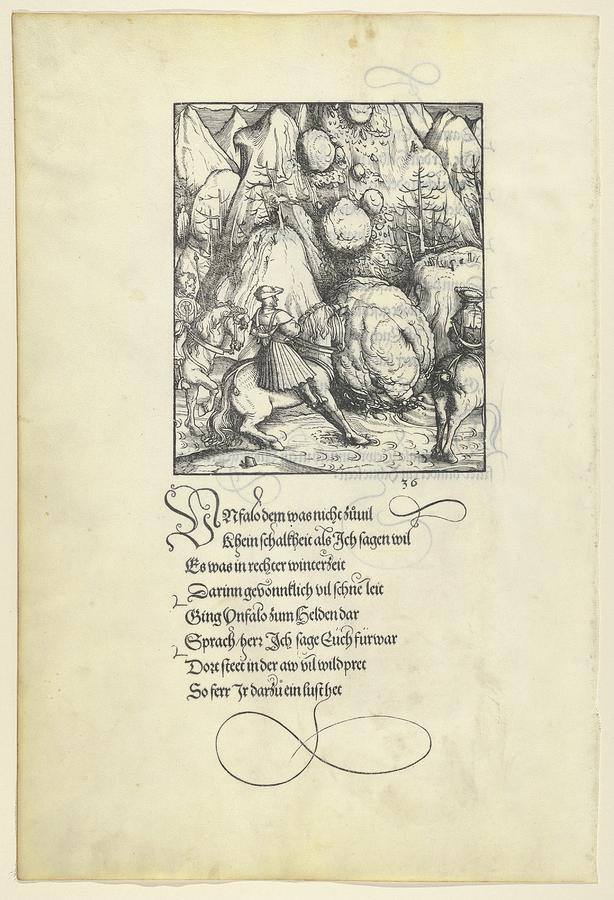 36
Unfalo dem was nicht zůuil
Khein schalkheit als Ich sagen wil
Es was in rechter winterzeit
Darinn gewonnklich vil schne leit
Ging Vnfalo zum Helden dar
Sprach/herr Ich sage Euch fürwar
Dort steet in der aw vil wildpret
So ferr Ir darzů ein lust het